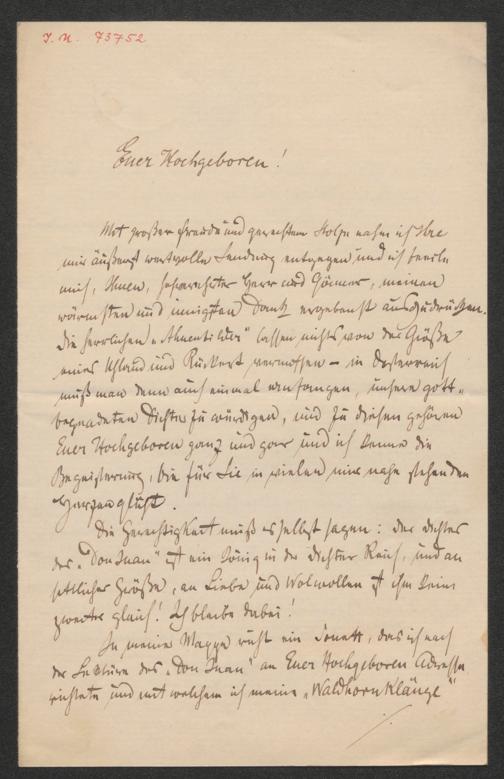 I. N. 73752
Euer Hochgeboren!
Mit großer Freude und gerechtem Stolze nahm ich Ihre
mir äußerst wertvolle Sendung entgegen und ich beeile
mich, Ihnen, hochverehrter Herr und Gönner, meinen
wärmsten und innigsten Dank ergebenst auszudrücken.
Die herrlichen „Ahnenbilder" lassen nichts von der Größe
eines Uhland und Rückert vermissen – in Oesterreich
muß man denn auch einmal anfangen, unsere gott-
begnadeten Dichter zu würdigen, und zu diesen gehören
Euer Hochgeboren ganz und gar und ich kenne die
Begeisterung, die für Sie in vielen mir nahe stehenden
Herzen glüht.
Die Gerechtigkeit muß es selbst sagen: der Dichter
des „Don Juan" ist ein König in der Dichter Reich, und an
sittlicher Größe, an Liebe und Wolwollen ist ihm keine
zweiter gleich! Ich bleibe dabei!
In meine Mappe ruht ein Sonett, das ich nach
der Lektüre des „Don Juan" an Euer Hochgeboren Adresse
richtete und mit welchem ich meine „Waldhornklänge"